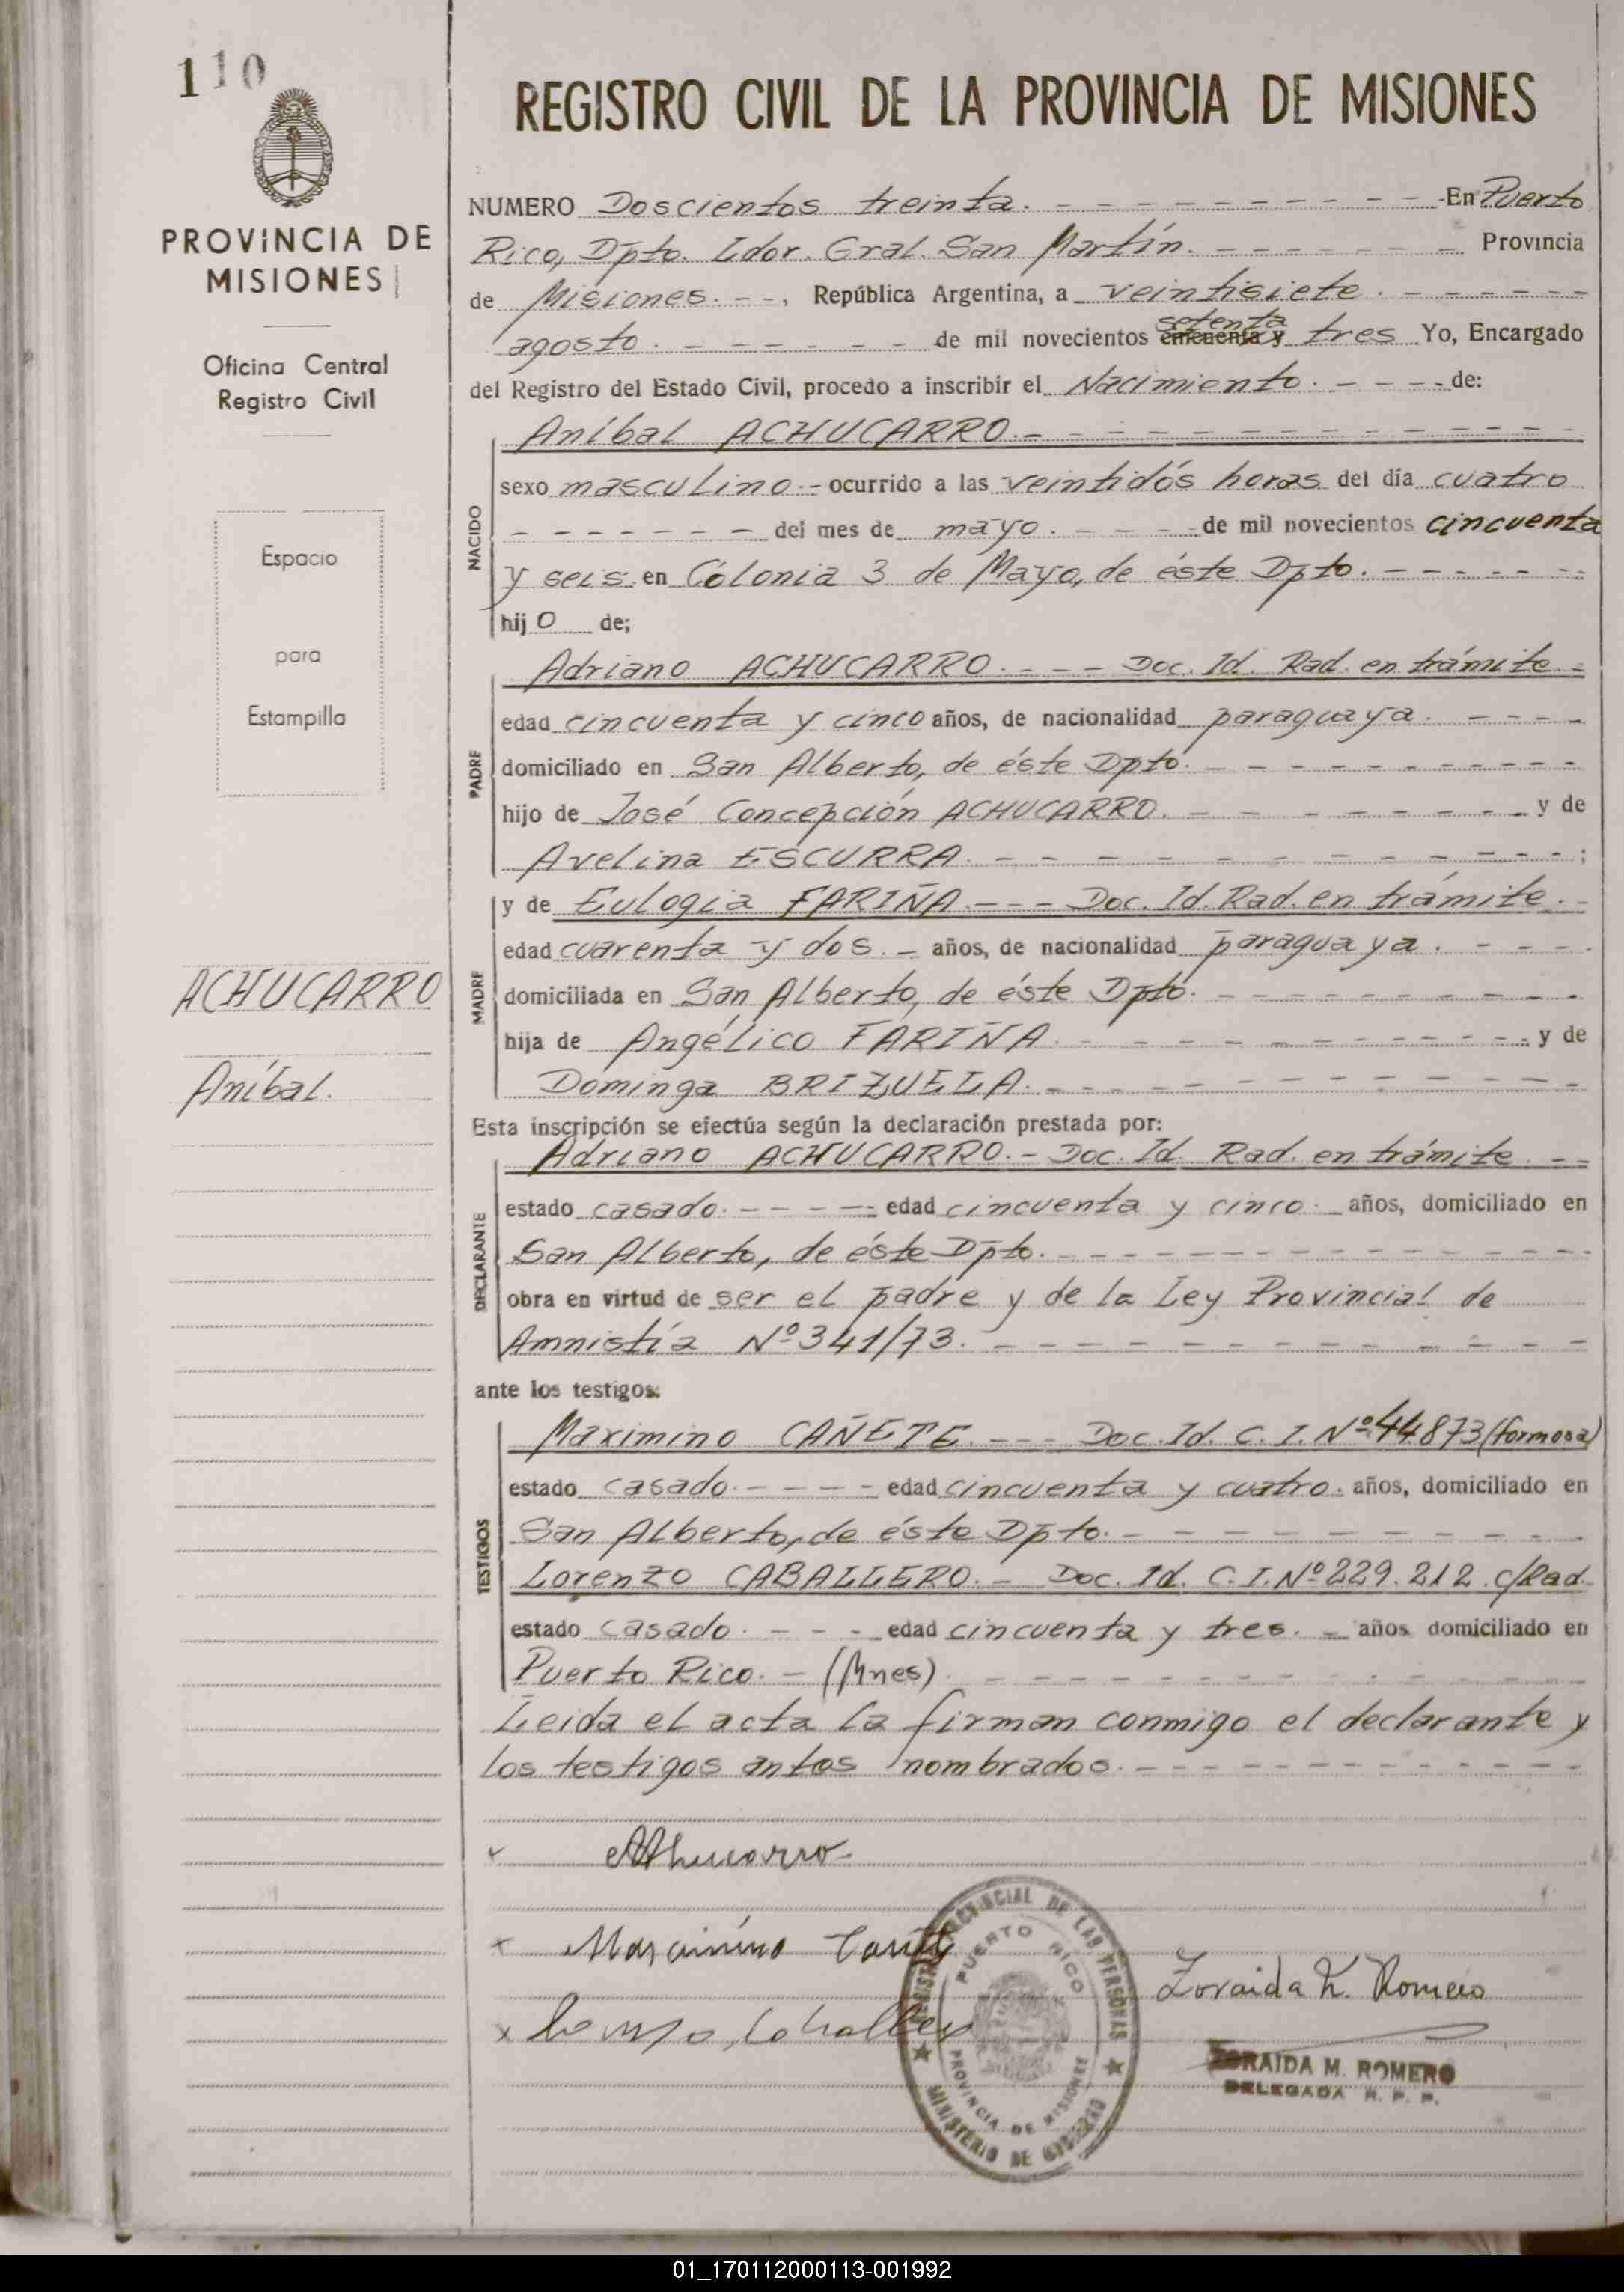 110
PROVINCIA DE
MISIONES
Oficina Central
Registro Civil
Espacio
para
Estampilla
ACHUCARRO
Aníbal.
REGISTRO CIVIL DE LA PROVINCIA DE MISIONES
NUMERO Doscientos treinta. En Puerto
Rico, Dpto. Ldor. Gral. San Martín. Provincia
de Misiones. República Argentina, a veintisiete.
agosto. de mil novecientos cincuenta y setenta y tres Yo, Encargado
del Registro del Estado Civil, procedo a inscribir el Nacimiento. de:
Aníbal ACHUCARRO.
NACIDO
sexo masculino. ocurrido a las veintidós horas del día cuatro
del mes de mayo. de mil novecientos cincuenta
y seis. en Colonia 3 de Mayo, de éste Dpto.
hijo de;
Adriano ACHUCARRO. Doc. Id. Rad. en trámite
PADRE
edad cincuenta y cinco años, de nacionalidad paraguaya.
domiciliado en San Alberto, de éste Dpto.
hijo de José Concepción ACHUCARRO. y de
Avelina ESCURRA. ;
y de Eulogia FARIÑA. Doc. Id. Rad. en trámite.
MADRE
edad cuarenta y dos. años, de nacionalidad paraguaya.
domiciliada en San Alberto, de éste Dpto.
hija de Angélico FARIÑA. y de
Dominga BRIZUELA.
Esta inscripción se efectúa según la declaración prestada por:
Adriano ACHUCARRO. - Doc. Id. Rad. en trámite.
DECLARANTE
estado casado. edad cincuenta y cinco. años, domiciliado en
San Alberto, de éste Dpto.
obra en virtud de ser el padre y de la Ley Provincial de
Amnistía Nº 341/73.
ante los testigos:
Maximino CAÑETE. Doc. Id. C. I. Nº 44873 (formosa)
TESTIGOS
estado casado. edad cincuenta y cuatro. años, domiciliado en
San Alberto, de éste Dpto.
Lorenzo CABALLERO. - Doc. Id. C. I. Nº 229.212 c/Rad.
estado casado. edad cincuenta y tres. años domiciliado en
Puerto Rico. - (Mnes)
Leida el acta la firman conmigo el declarante y
los testigos antes nombrados.
REGISTRO PROVINCIAL DE LAS PERSONAS
PUERTO RICO
PROVINCIA DE MISIONES
MINISTERIO DE GOBIERNO
Zoraida M. Romero
ZORAIDA M. ROMERO
DELEGADA R. P. P.
01_170112000113-001992